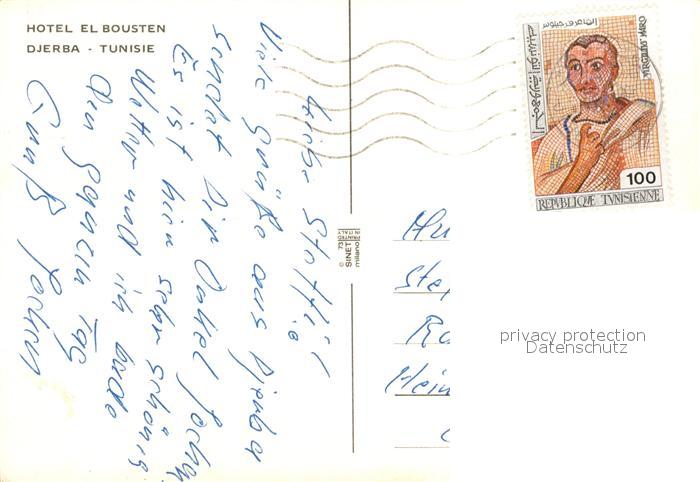 HOTEL EL BOUSTEN
DJERBA - TUNISIE
Liebe Steffi!
Viele Grüße aus Djerba
sendet Dir Onkel Jochen
Es ist hier sehr schönes
Wetter und ich bade
den ganzen Tag
Gruß Jochen
© 73
SINET
milano
PRINTED
IN ITALY
الشاعر فرجيليوس
الجمهورية التونسية
VIRGILIUS MARO
100
REPUBLIQUE TUNISIENNE
privacy protection
Datenschutz